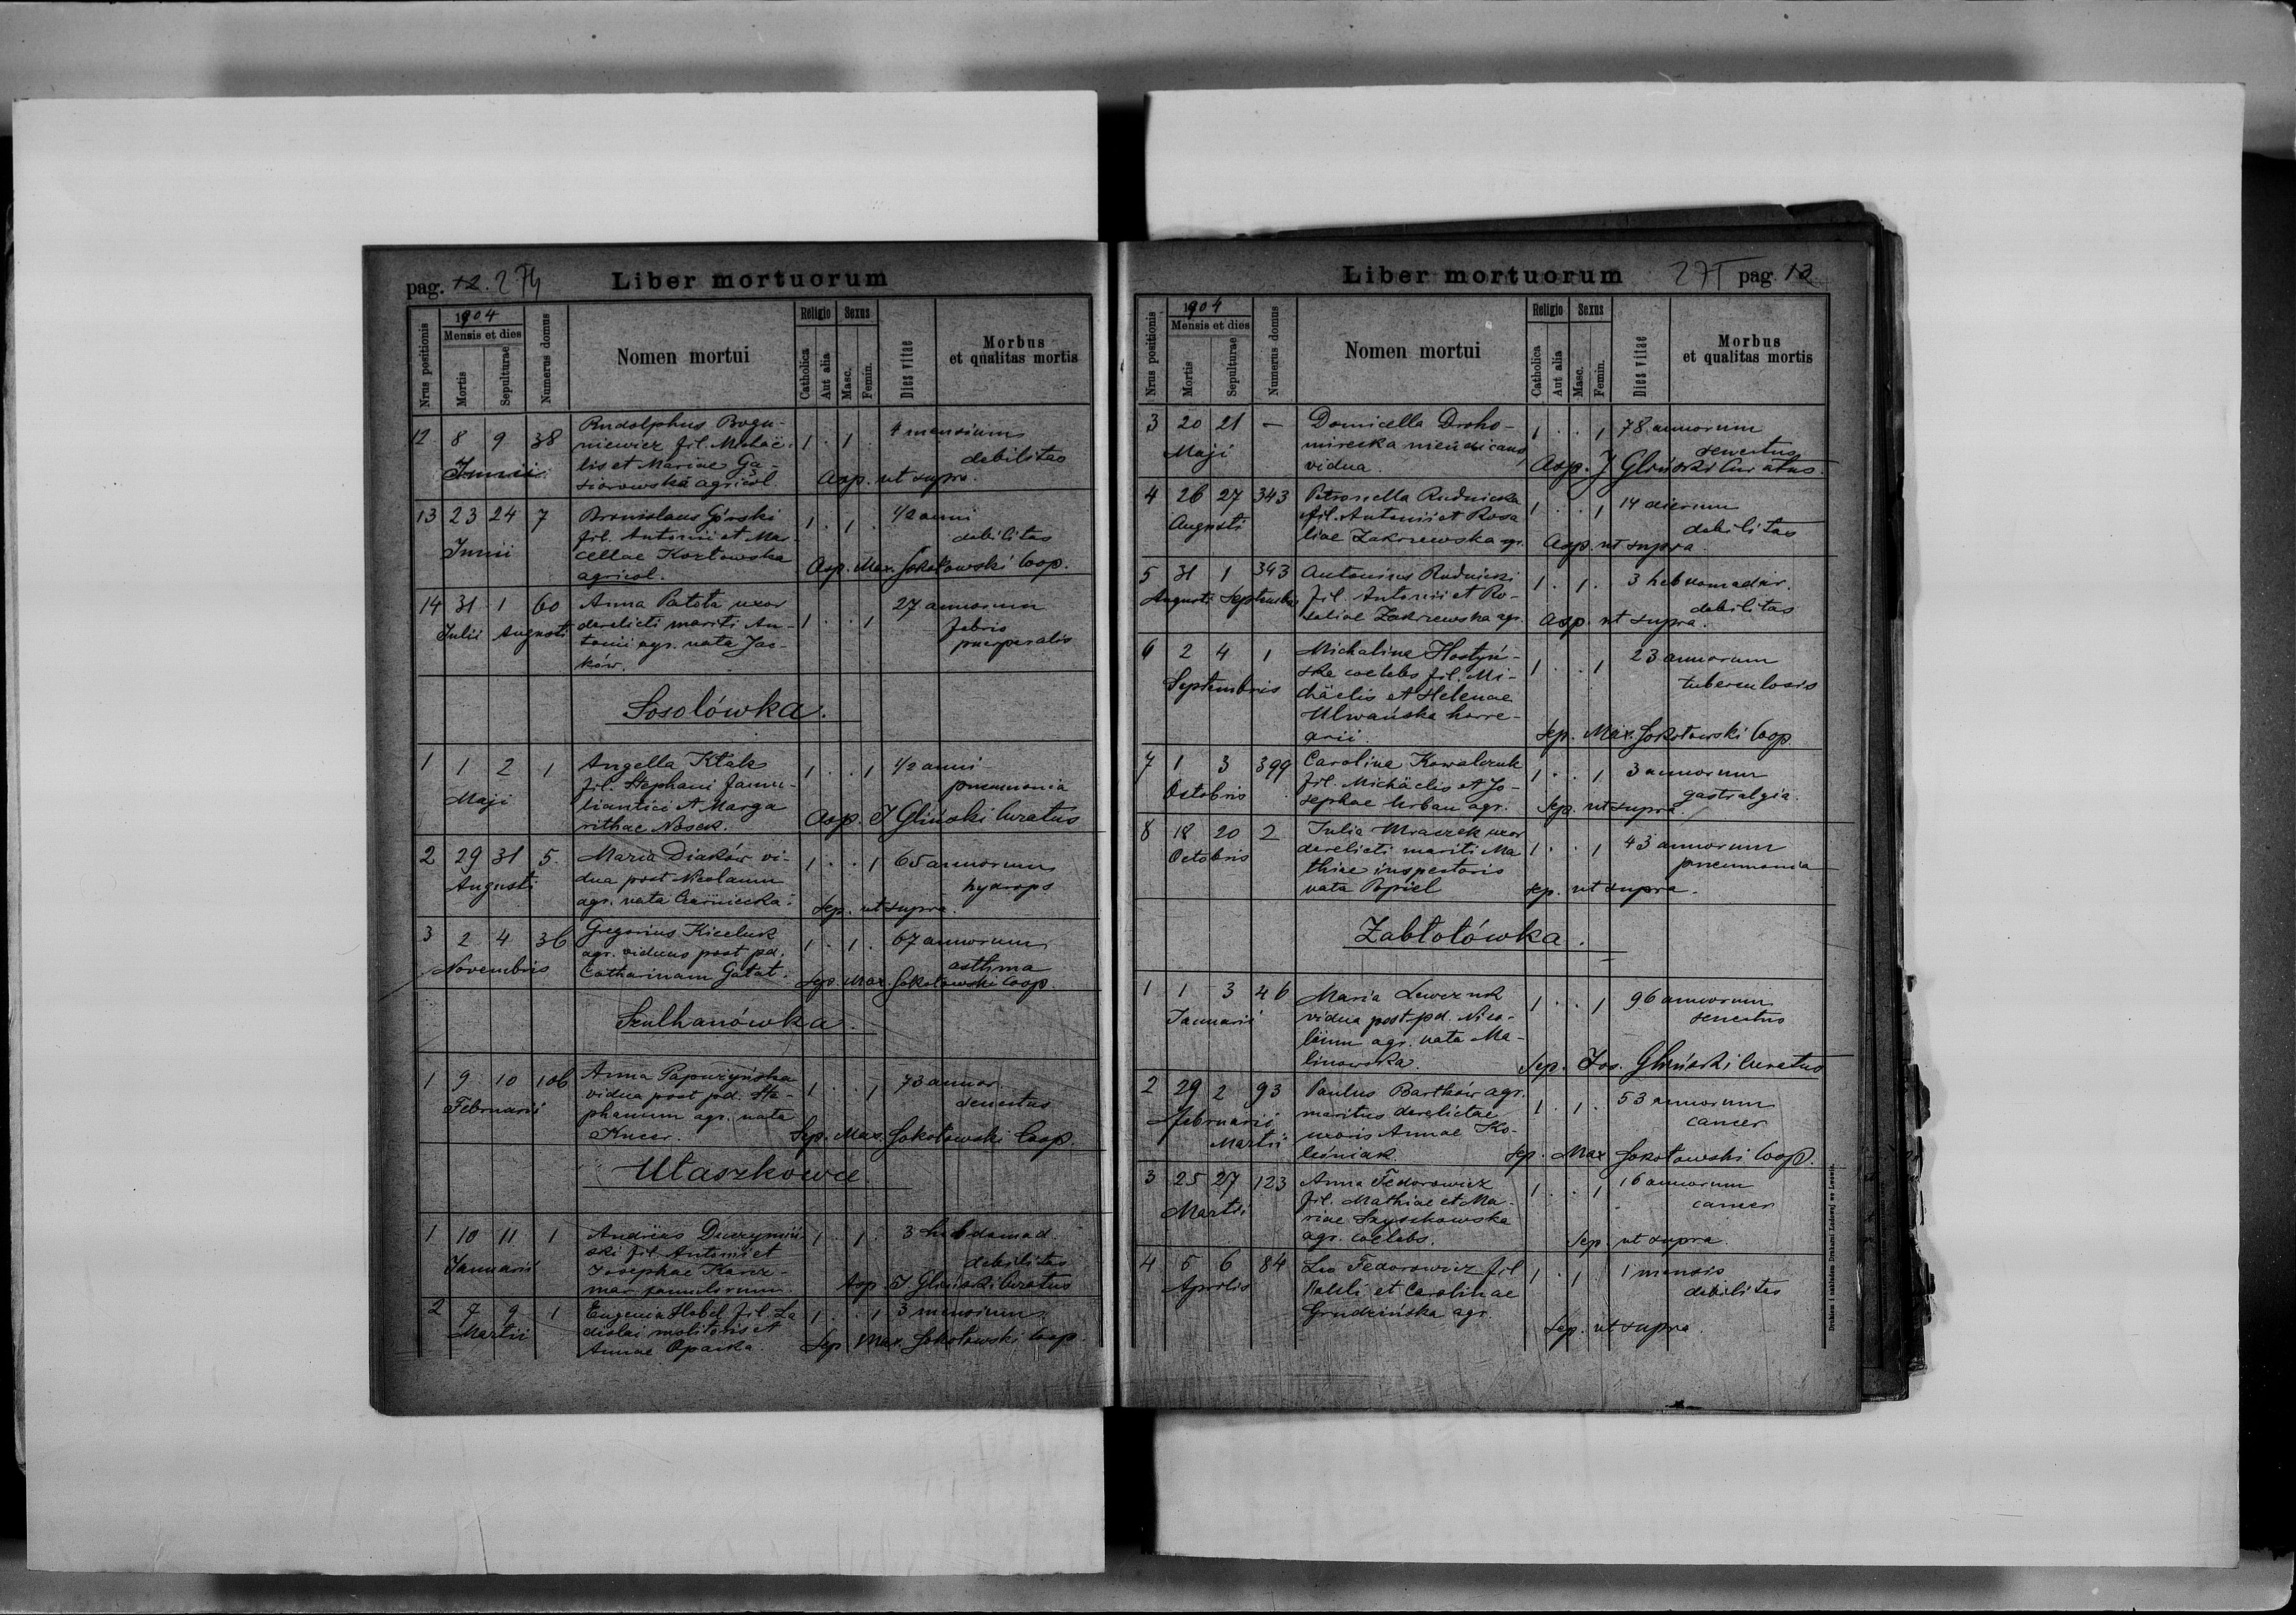 pag. 12. 274 Liber mortuorum
Nrus positionis 1904 Mensis et dies Mortis Sepulturae Numerus domus Nomen mortui Religio Catholica Aut alia Sexus Masc. Femin. Dies vitae Morbus et qualitas mortis
12 8 9 38 Rudolphus Bogu-
niewicz fil. 1 . 1 . 4 mensium
Junii lis et Mariae Gą- debilitas
siorowska agricol. Asp. ut supra.
13 23 24 7 Bronislaus Górski 1 . 1 . 1/2 anni
Junii fil. Antonii et Mar- debilitas
cellae Kozłowska Asp. Max. Sokołowski Coop.
agricol.
14 31 1 60 Anna Patota uxor 1 . . 1 27 annorum
Julii Augusti derelicti mariti An- febris
tonii agr. nata Jac- puerperalis
ków.
Sosolówka.
1 1 2 1 Angella Kłak 1 . . 1 1/2 anni
Maji fil. Stephani famu- pneumonia
litantici et Marga
rithae Nosek. Asp. J Gliński Curatus
2 29 31 5. Maria Diaków vi- 1 . . 1 65 annorum
Augusti dua post Nicolaum hydrops
agr. nata Czarniecka. Sep. ut supra.
3 2 4 36 Gregorius Kiceluk 1 . 1 . 67 annorum
Novembris agr. viduus post pd. asthma
Catharinam Gałat. Sep. Max. Sokołowski Coop.
Szulhanówka.
1 9 10 106 Anna Papuzyńska 1 . . 1 73 annor.
Februarii vidua post pd. Ste- senectus
phanum agr. nata
Kucer. Sep. Max. Sokołowski Coop.
Ułaszkowce.
1 10 11 1 Andreas 1 . 1 . 3 hebdomad.
Januarii ski fil. Antonii et debilitas
Josephae Karcz-
mar famulorum. Asp. J Gliński Curatus
2 7 9 1 Eugenia Hobel fil. La 1 . . 1 3 mensium
Martii dislai molitoris et
Annae Oparka. Sep. Max. Sokołowski Coop.
Liber mortuorum 275 pag. 13
Nrus positionis 1904 Mensis et dies Mortis Sepulturae Numerus domus Nomen mortui Religio Catholica Aut alia Sexus Masc. Femin. Dies vitae Morbus et qualitas mortis
3 20 21 — Domicella Droho- 1 . . 1 78 annorum
Maji mirecka mendicans senectus
vidua. Asp. J Gliński Curatus.
4 26 27 343 Petronella Rudnicka 1 . . 1 14 dierum
Augusti fil. Antonii et Rosa debilitas
liae Zakrzewska agr. Asp. ut supra.
5 31 1 343 Antonius Rudnicki 1 . 1 . 3 hebdomadar.
Augusti Septembris fil. Antonii et Ro- debilitas
saliae Zakrzewska agr. Asp. ut supra.
6 2 4 1 Michalina Hostyń- 1 . . 1 23 annorum
Septembris ska coelebs fil. Mi- tuberculosis
chäelis et Helenae
Ulwańska horre-
arii. Sep. Max. Sokołowski Coop.
7 1 3 399 Carolina Kowalczuk 1 . . 1 3 annorum
Octobris fil. Michäelis et Jo- gastralgia.
sephae Urban agr. Sep. ut supra.
8 18 20 2 Julia Mraczek uxor 1 . . 1 43 annorum
Octobris derelicti mariti Ma pneumonia
thiae inspectoris
nata Popiel Sep. ut supra.
Zabłotówka.
1 1 3 46 Maria Lewczuk 1 . . 1 96 annorum
Januarii vidua post pd. Nico- senectus
läum agr. nata Ma-
linowska. Sep. Jos. Gliński Curatus
2 29 2 93 Paulus Bartków agr. 1 . 1 . 53 annorum
Februarii Martii maritus derelictae cancer
uxoris Annae Ko-
leśniak. Sep. Max Sokołowski Coop.
3 25 27 123 Anna Fedorowicz 1 . . 1 16 annorum
Martii fil. Mathiae et Ma- cancer
riae Szyschowska
agr. coelebs. Sep. ut supra.
4 5 6 84 Leo Fedorowicz fil 1 . 1 1 mensis
Aprilis et Carolinae debilitas
Grudzińska agr. Sep. ut supra.
Drukiem i nakładem Drukarni Ludowej we Lwowie.